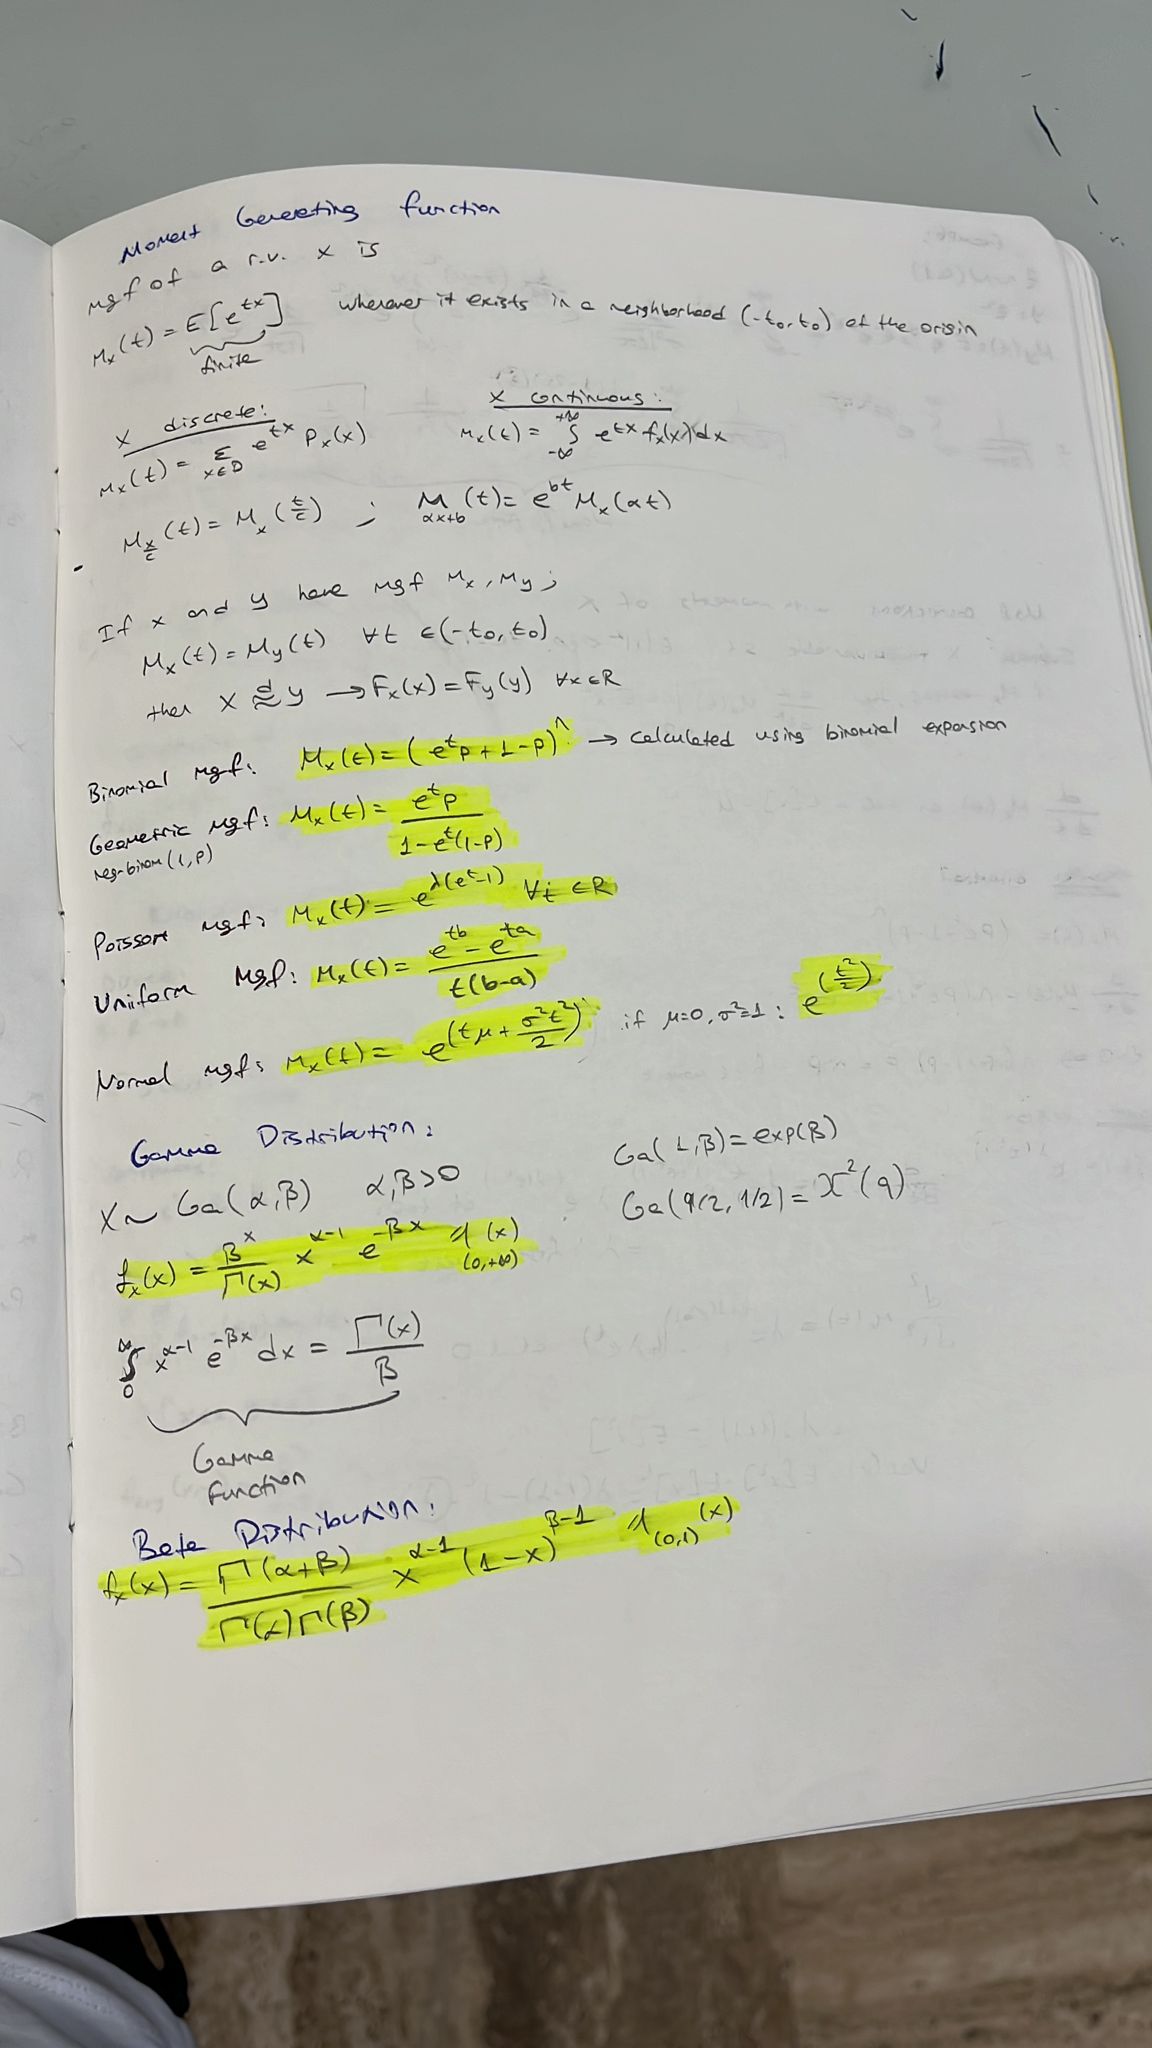 Moment Generating function
mgf of a r.v. x is
Mₓ(t) = E[e^{tx}] wherever it exists in a neighborhood (-t₀, t₀) of the origin
finite
X discrete: X continuous:
Mₓ(t) = Σ_{x∈D} e^{tx} pₓ(x) Mₓ(t) = ∫_{-∞}^{+∞} e^{tx} fₓ(x) dx
M_{x/c}(t) = Mₓ(t/c) ; M_{αx+b}(t) = e^{bt} Mₓ(αt)
If x and y have mgf Mₓ, My ;
Mₓ(t) = My(t) ∀t ∈ (-t₀, t₀)
then X ≈^d y → Fₓ(x) = Fy(y) ∀x∈R
Binomial mgf: Mₓ(t) = (e^t p + 1 - p)^n → calculated using binomial expansion
Geometric mgf: Mₓ(t) = e^t p / (1 - e^t(1-p))
neg-binom(1, p)
Poisson mgf: Mₓ(t) = e^{λ(e^t - 1)} ∀t ∈ R
Uniform Mgf: Mₓ(t) = (e^{tb} - e^{ta}) / t(b-a)
Normal mgf: Mₓ(t) = e^{(tμ + σ²t²/2)} if μ=0, σ²=1 : e^{(t²/2)}
Gamma Distribution:
X ~ Ga(α, β) α, β > 0 Ga(1, β) = exp(β)
Ga(q/2, 1/2) = X²(q)
fₓ(x) = β^x / Γ(x) x^{α-1} e^{-βx} 1_{(0,+∞)}(x)
∫_0^∞ x^{α-1} e^{-βx} dx = Γ(x) / β
Gamma
function
Beta Distribution:
fₓ(x) = Γ(α+β) / Γ(α)Γ(β) x^{α-1} (1-x)^{β-1} 1_{(0,1)}(x)